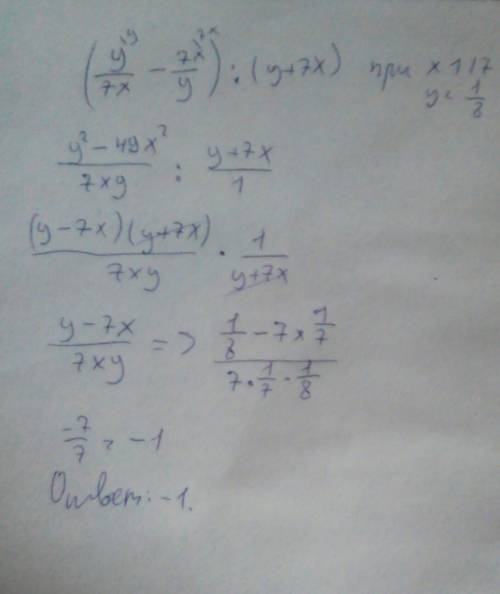 (y^y/7x − 7x^7x/y) : (y+7x) при x 1/7
y = 1/8
y² − 49x² / 7xy : y+7x / 1
(y−7x)(y+7x) / 7xy · 1 / y+7x
y−7x / 7xy => 1/8 − 7 × 1/7 / 7 · 1/7 · 1/8
-7/7 = −1
Ответ: -1.